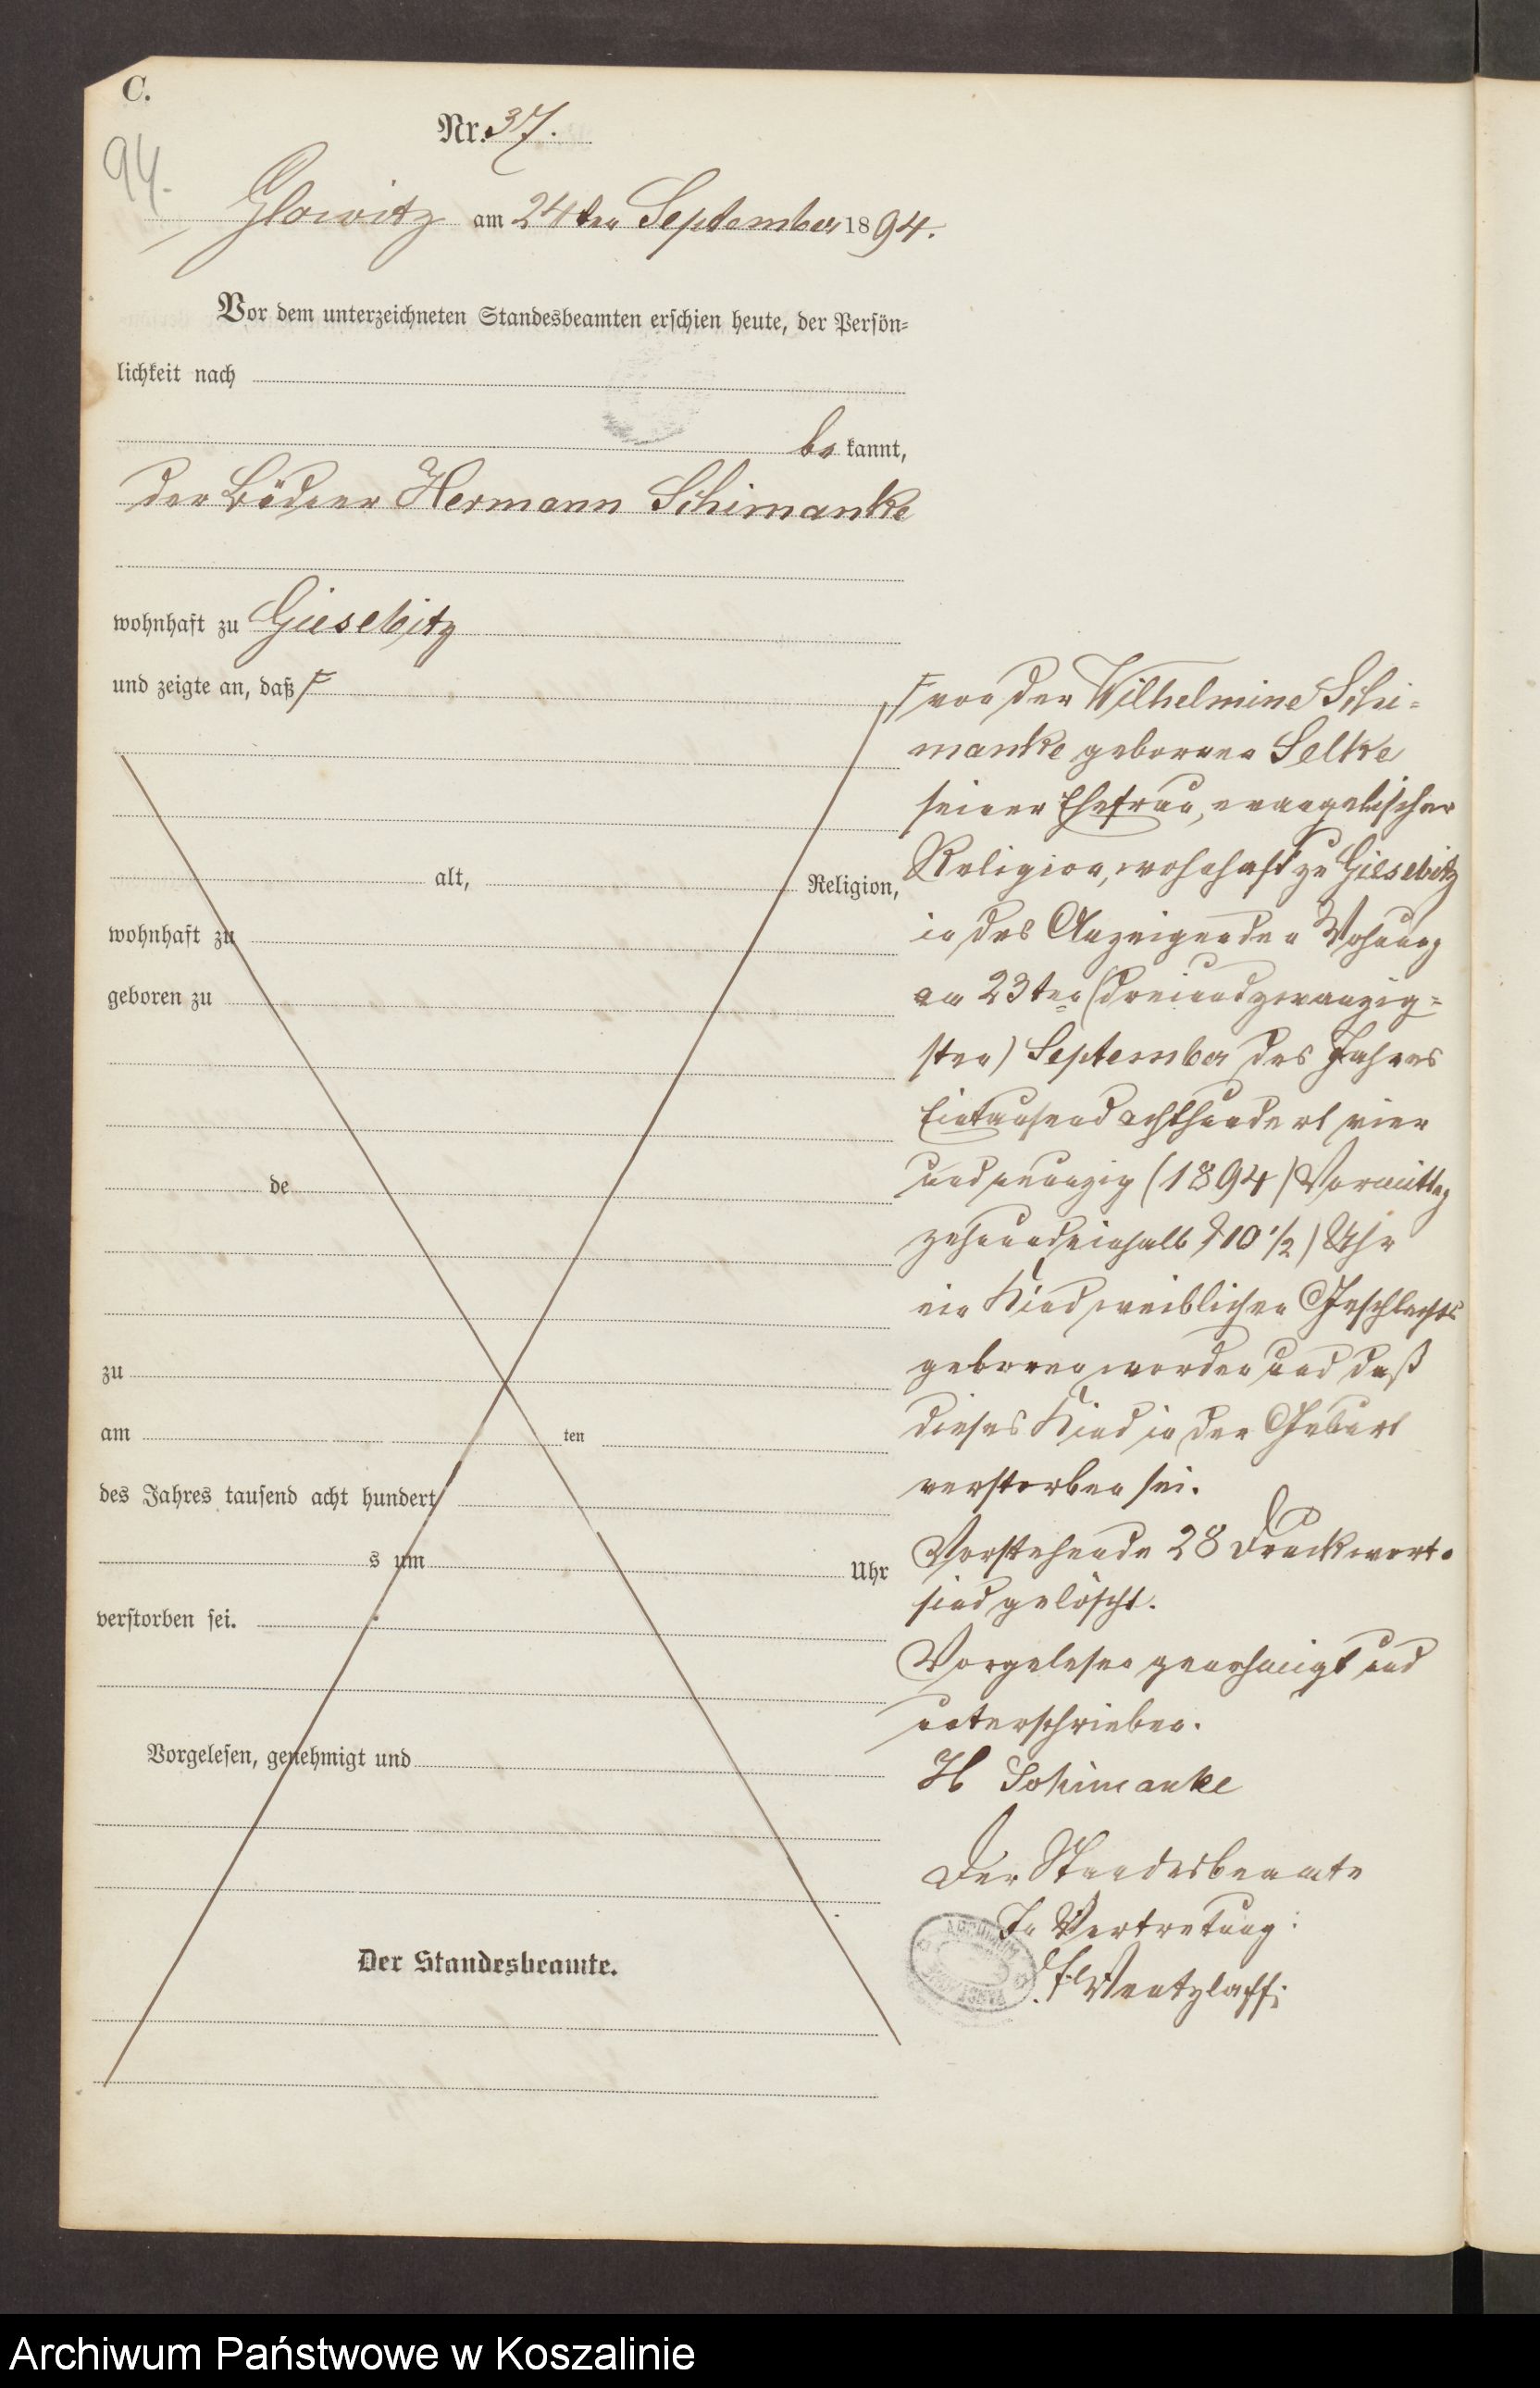 C.
94.
Nr. 37.
Glowitz am 24ten September 1894.
Vor dem unterzeichneten Standesbeamten erschien heute, der Persön=
lichkeit nach
be kannt,
der Büdner Hermann Schimanke
wohnhaft zu Giesebitz
und zeigte an, daß F
alt, Religion,
wohnhaft zu
geboren zu
de
zu
am ten
des Jahres tausend acht hundert
s um Uhr
verstorben sei.
Vorgelesen, genehmigt und
Der Standesbeamte.
F von der Wilhelmine Schi=
manke geborenen Selke
seiner Ehefrau, evangelischer
Religion, wohnhaft zu Giesebitz
in des Anzeigenden Wohnung
am 23ten (dreiundzwanzig=
sten) September des Jahres
Eintausend achthundert vier
und neunzig (1894) Vormittag
zehnundeinhalb (10 1/2) Uhr
ein Kind weiblichen Geschlechts
geboren worden und daß
dieses Kind in der Geburt
verstorben sei.
Vorstehende 28 Druckworte
sind gelöscht.
Vorgelesen genehmigt und
unterschrieben.
H Schimanke
Der Standesbeamte
In Vertretung:
Wentzlaff
Archiwum Państwowe w Koszalinie